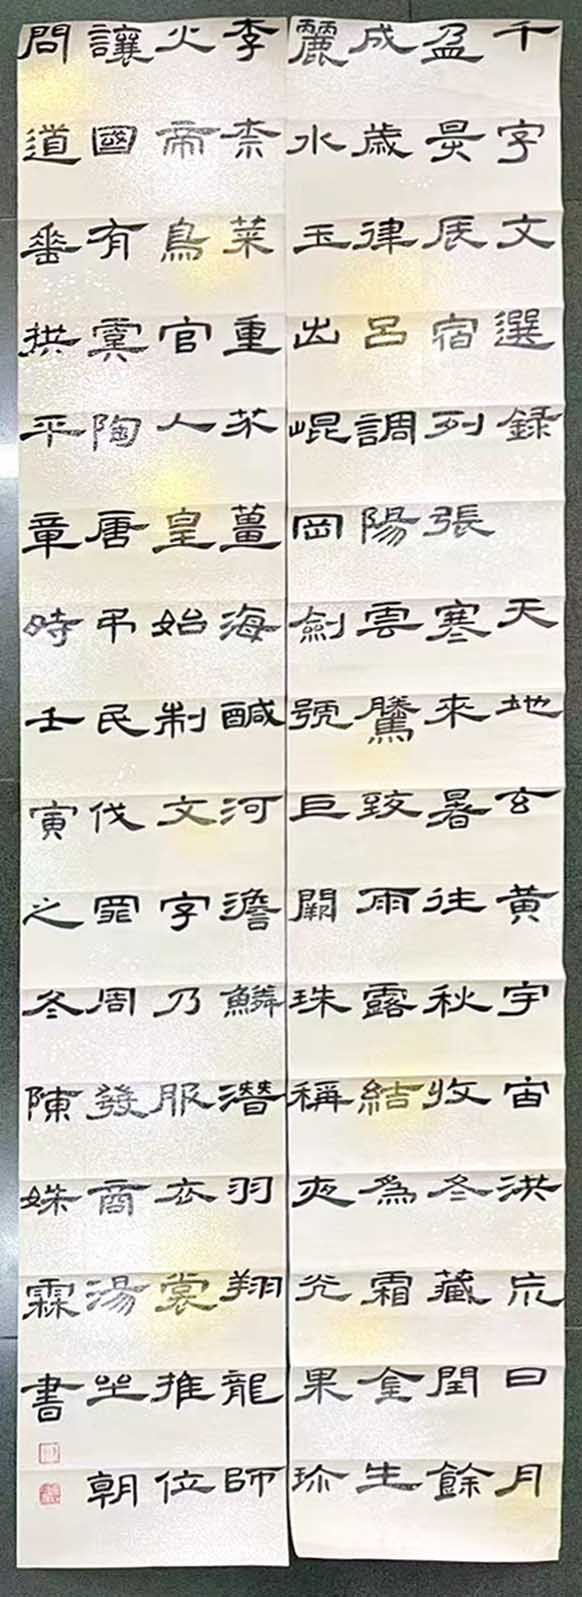 千字文選録 天地玄黃宇宙洪荒日月
盈昃辰宿列張寒來暑往秋收冬藏閏餘
成歲律呂調陽雲騰致雨露結爲霜金生
麗水玉出崐岡劍號巨闕珠稱夜光果珍
李柰菜重芥薑海醎河澹鱗潛羽翔龍師
火帝鳥官人皇始制文字乃服衣裳推位
讓國有虞陶唐弔民伐罪周發商湯坐朝
問道垂拱平章時壬寅之冬陳姝霖書